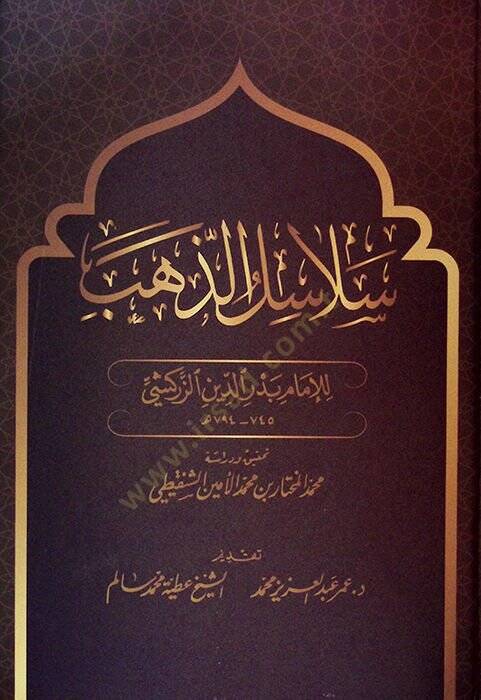 سَلَاسِلُ الذَّهَبِ
لِلإِمَام بَدْرِ الدِّين الزَّرْكَشِيِّ
٧٤٥ - ٧٩٤ هـ
تحقيق ودراسة
محمد المختار بن محمد الأمين الشنقيطي
تقديم
د. عمر عبد العزيز محمد الشيخ عطية محمد سالم